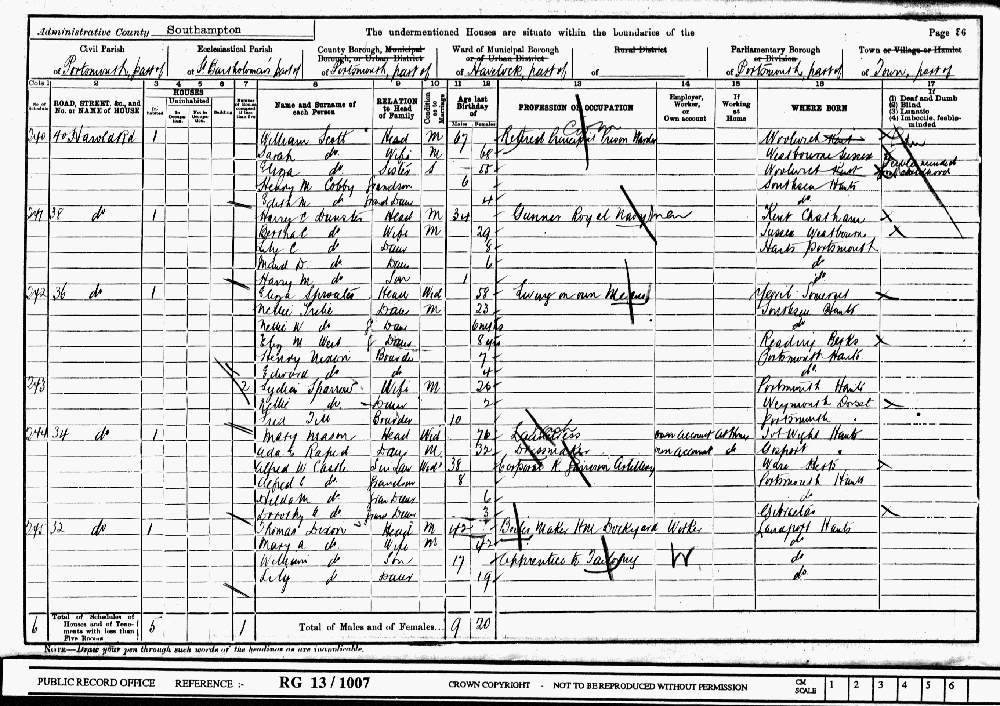 Administrative County Southampton The undermentioned Houses are situate within the boundaries of the Page 86
Civil Parish Ecclesiastical Parish County Borough, Municipal Borough, or Urban District Ward of Municipal Borough or of Urban District Rural District Parliamentary Borough or Division Town or Village or Hamlet
of Portsmouth, part of of St. Bartholomew's part of of Portsmouth, part of of Havelock, part of of of Portsmouth, part of of Town, part of
Cols 1 2 3 4 5 6 7 8 9 10 11 12 13 14 15 16 17
No. of Schedule ROAD, STREET, &c., and No. or NAME of HOUSE HOUSES Inhabited Uninhabited In Occupation Not in Occupation Building Name and Surname of each Person RELATION to Head of Family Condition as to Marriage Age last Birthday of Males Females PROFESSION OR OCCUPATION Employer, Worker, or Own account If Working at Home WHERE BORN If (1) Deaf and Dumb (2) Blind (3) Lunatic (4) Imbecile, feeble-minded
240 40 1 William Scott Head M 67 Retired Principal Prison Warder Woolwich Kent
Sarah do Wife M 68 Westbourne Sussex
Eliza do Sister S 55 Woolwich Kent Feeble minded
Henry M Cobby Grandson 6 Southsea Hants
Edith M do Grand Daur 4 do
241 38 do 1 Harry C Head M 34 Gunner Royal Navy Kent Chatham
Bertha C do Wife M 29 Sussex Westbourn
Lily C do Daur 8 Hants Portsmouth
Maud D do Daur 6 do
Harry M do Son 1 do
242 36 do 1 Eliza Head Wid 58 Living on own Means Somerset
Nellie Daur M 23 Hants
Nellie W do G Daur 6 mths do
M West G Daur 8 Reading Berks
Henry Nixon Boarder 7 Portsmouth Hants
Edward do do 4 do
243 2 Lydia Sparrow Wife M 26 Portsmouth Hants
Nellie do Daur 2 Weymouth Dorset
Fred Boarder 10 Portsmouth
244 34 do 1 Mary Mason Head Wid 76 own account At Home I of Wight Hants
Ada Daur M 32 Dressmaker own account do Gosport
Alfred W Castle Son Law Wid 38 Corporal R Garrison Artillery Ware Herts
Alfred E do Grandson 8 Portsmouth Hants
Hilda M do Gran Daur 6 do
Dorothy E do Grand Daur 3 Gibraltar
245 32 do 1 Thomas Dixon Head M 42 Boiler Maker HM Dockyard Worker Landport Hants
Mary A do Wife M 42 do
William do Son 17 Apprentice to W do
Lily do Daur 19 do
6 Total of Schedules of Houses and of Tenements with less than Five Rooms 5 1 Total of Males and of Females... 9 20
NOTE—Draw your pen through such words of the headings as are inapplicable.
PUBLIC RECORD OFFICE REFERENCE :- RG 13/1007 CROWN COPYRIGHT - NOT TO BE REPRODUCED WITHOUT PERMISSION CM SCALE 1 2 3 4 5 6